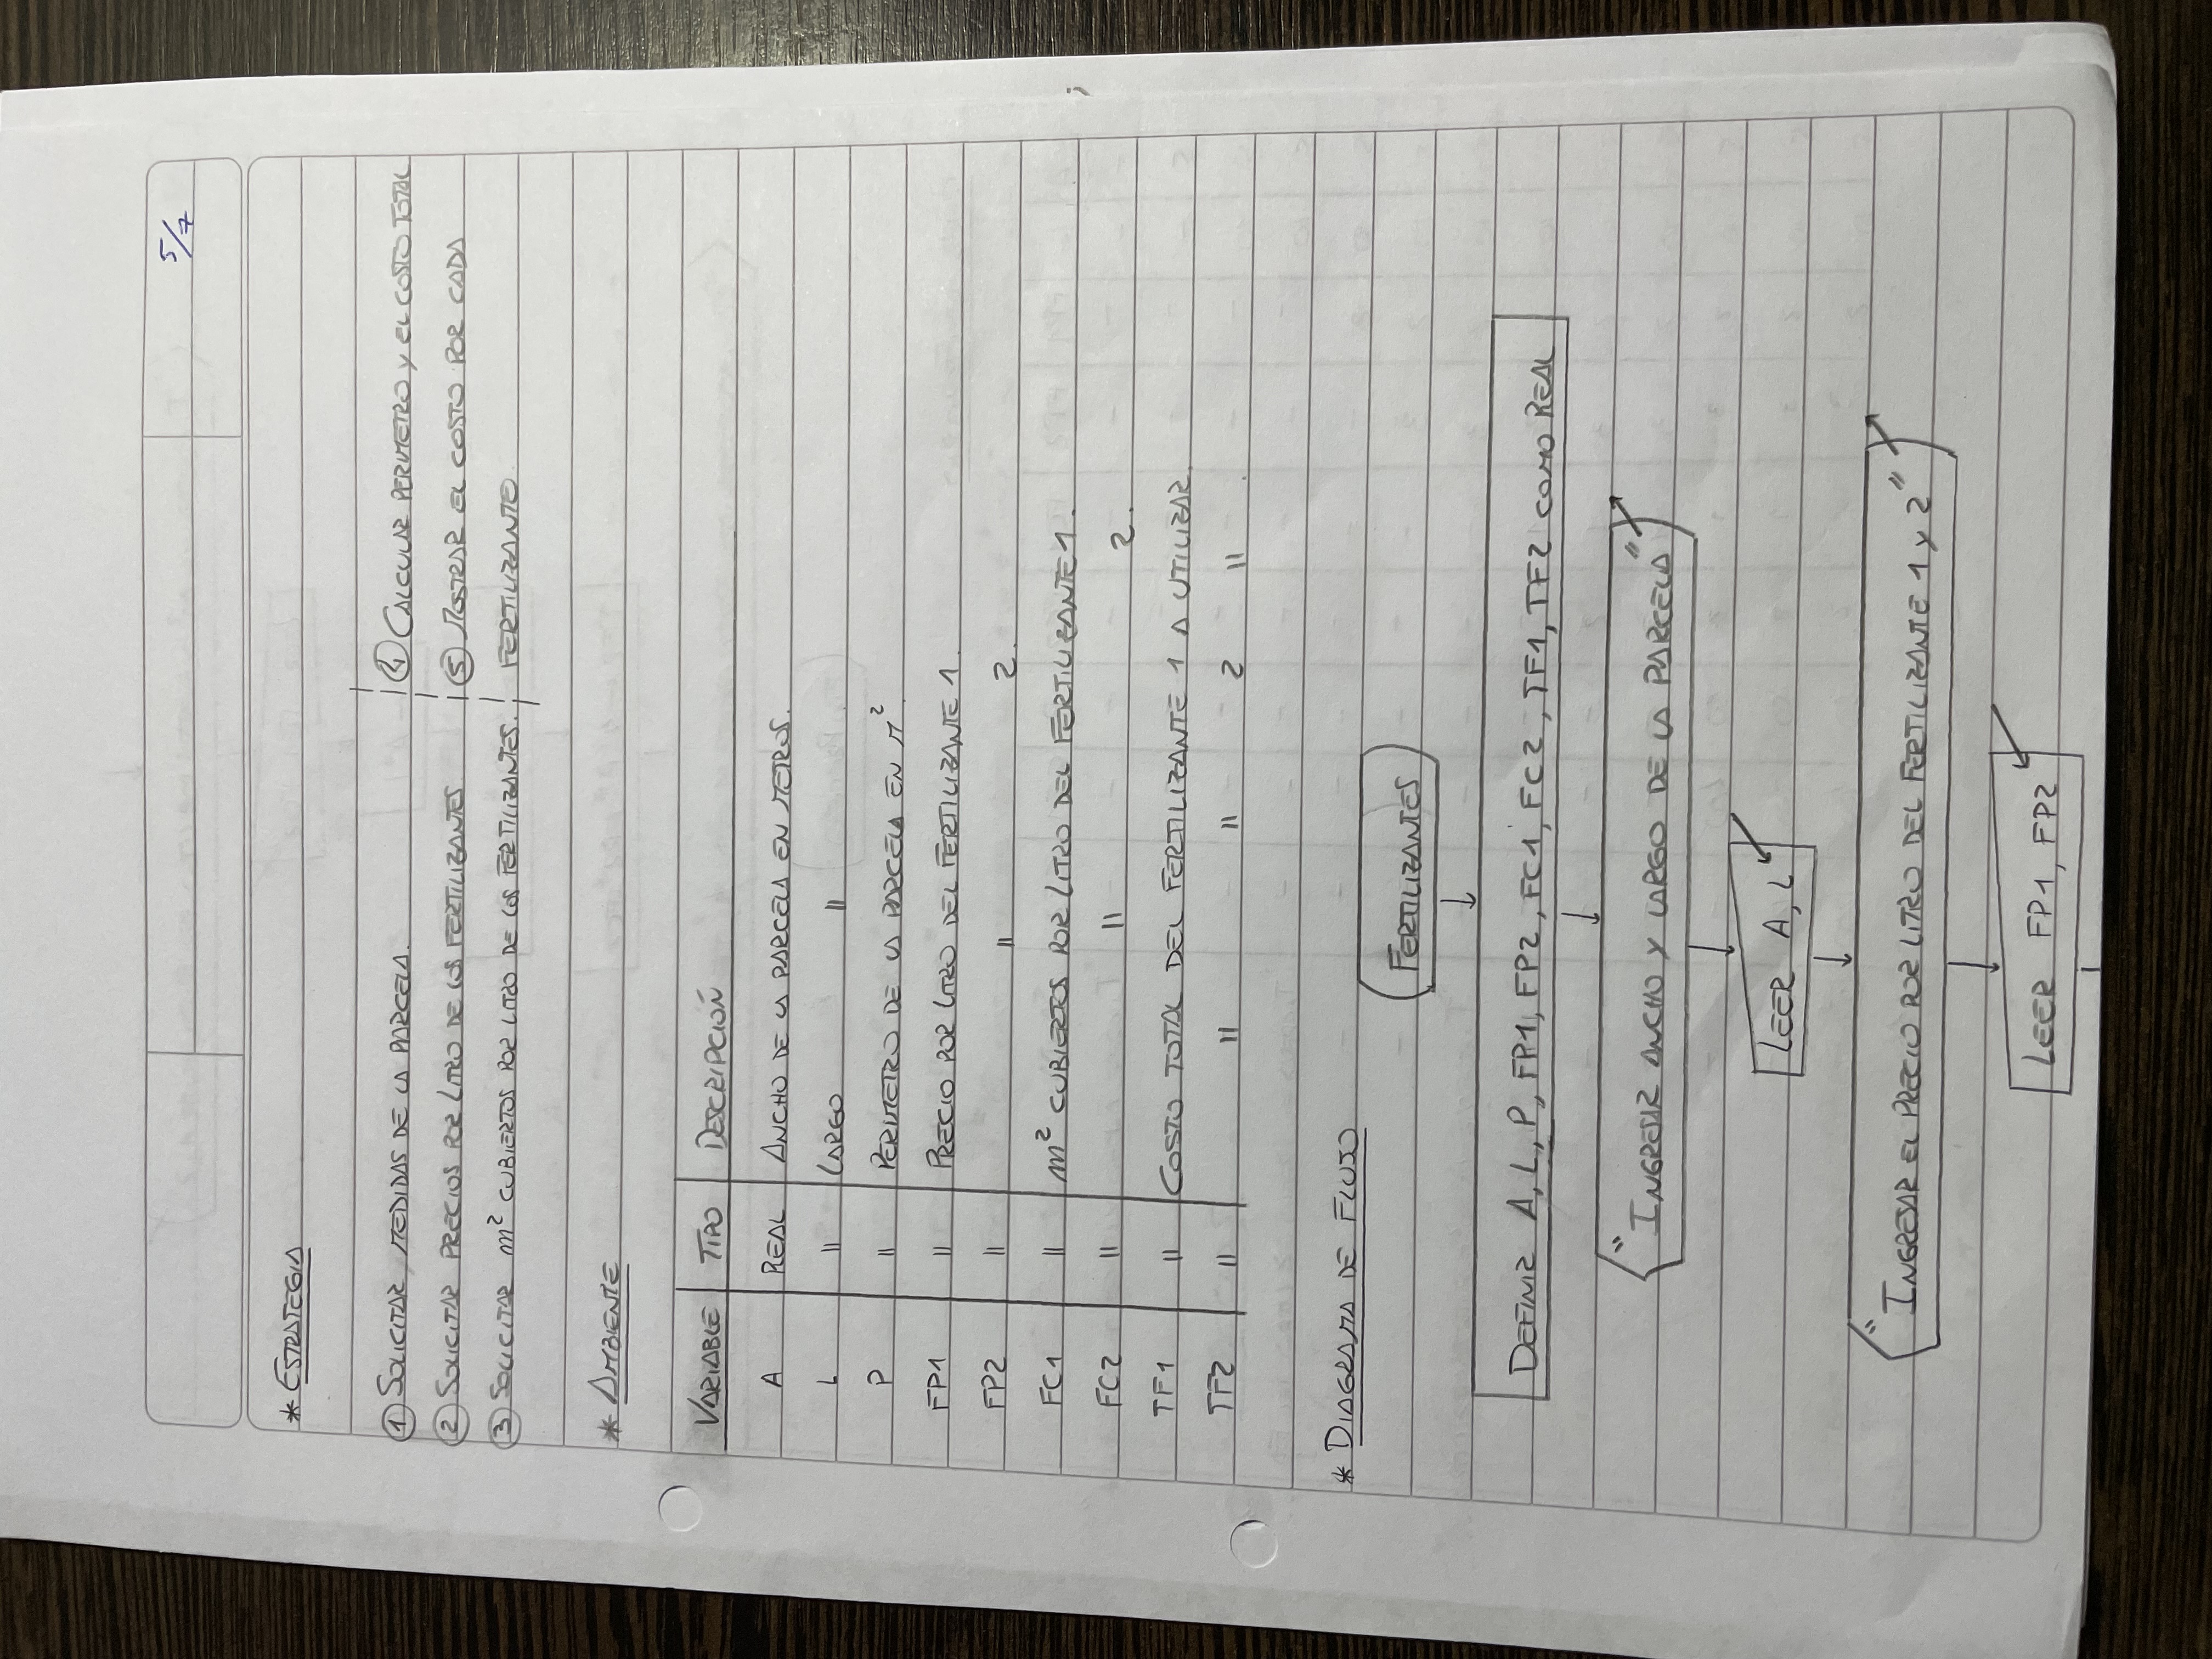 5/7
* ESTRATEGIA
① SOLICITAR MEDIDAS DE LA PARCELA.
② SOLICITAR PRECIOS POR LITRO DE LOS FERTILIZANTES
③ SOLICITAR m² CUBIERTOS POR LITRO DE LOS FERTILIZANTES.
④ CALCULAR PERIMETRO Y EL COSTO TOTAL
⑤ MOSTRAR EL COSTO POR CADA
FERTILIZANTE.
* AMBIENTE
VARIABLE TIPO DESCRIPCIÓN
A REAL ANCHO DE LA PARCELA EN METROS.
L " LARGO "
P " PERIMETRO DE LA PARCELA EN M².
FP1 " PRECIO POR LITRO DEL FERTILIZANTE 1.
FP2 " " 2.
FC1 " m² CUBIERTOS POR LITRO DEL FERTILIZANTE 1.
FC2 " " 2.
TF1 " COSTO TOTAL DEL FERTILIZANTE 1 A UTILIZAR.
TF2 " " " 2 " .
* DIAGRAMA DE FLUJO
FERTILIZANTES
DEFINIR A, L, P, FP1, FP2, FC1, FC2, TF1, TF2 COMO REAL
"INGRESAR ANCHO Y LARGO DE LA PARCELA"
LEER A, L
"INGRESAR EL PRECIO POR LITRO DEL FERTILIZANTE 1 Y 2"
LEER FP1, FP2